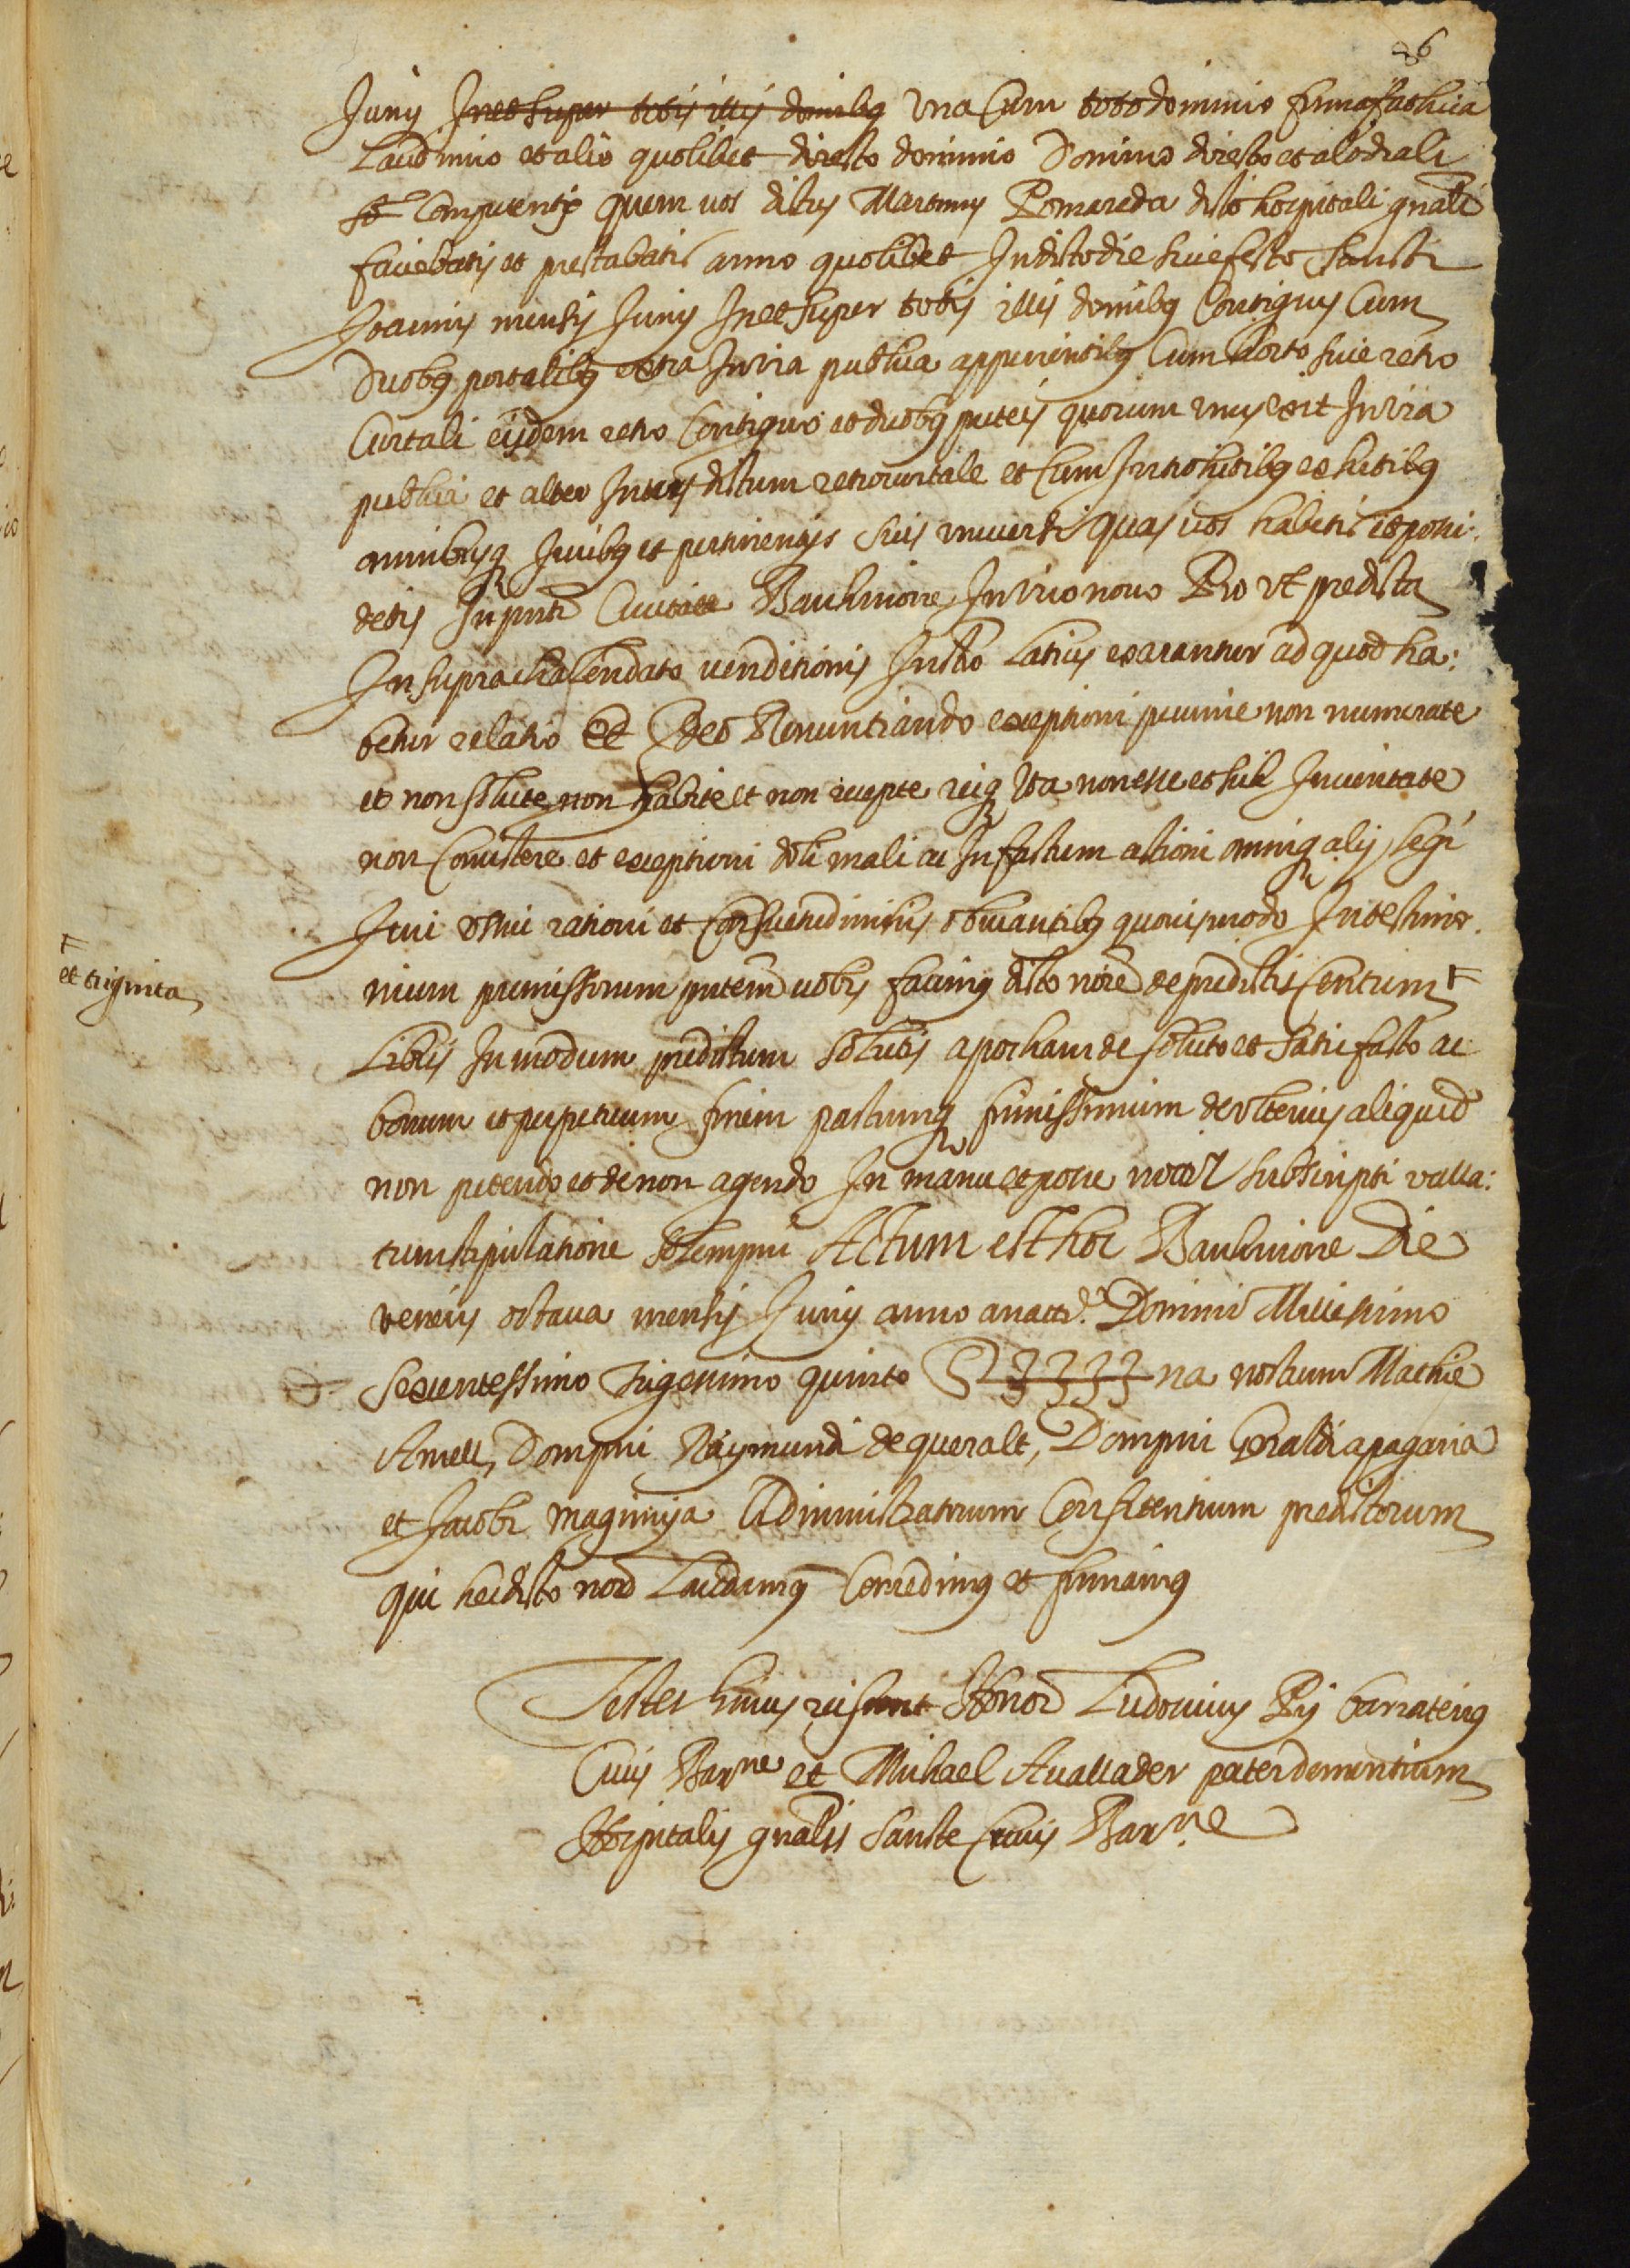 26
Junij In et super totis illis domibus Una Cum toto dominio firma fathica
Laudimio et alio quolibet directo dominio Domino directo et alodiali
Competentis quem vos dictus Martinus Pomareda dicto hospitali gnali
faciebatis et prestabatis anno quolibet In dicto die sive festo Sancti
Joannis mensis Junij In et super totis illis domibus Contiguis Cum
Duobus portalibus extra In via publica apperientibus Cum horto sive retro
Curtali eisdem retro Contiguo et duobus puteis quorum unus exit In via
publica et alter Intus dictum retrocurtale et Cum Introhitibus exhitibus
omnibusque Juribus et pertinentijs suis universis quas vos habetis et possi:
detis In pnti Civitate Barchinone In vico novo Pro ut predicta
In suprachalendato venditionis Insto Latius exarantur ad quod ha:
betur relatio Et Ideo Renuntiando exceptioni pecunie non numerate
et non solute non habite et non recepte reique Ita non esse et sub In veritate
non Consistere et exceptioni doli mali ac In factum actioni omnique alij legi
Juri usui rationi et Consuetudinibus obviantibus quovismodo In testimo:
nium premissorum pntem vobis facimus dicto noie de predictis Centum
et triginta
Libris In modum predictum solutis apocham de soluto et satisfacto ac
bonum et perpetuum finem pactumque firmissimum de ulterius aliquid
non petendo et de non agendo In manu et posse notarij subscripti valla:
tum stipulatione solempni Actum est hoc Barchinone Die
veneris octava mensis Junij anno a natte. Domini Millesimo
Sexcentessimo trigesimo quinto S na nostrum Mathie
Amell, Dompni Raymundi de queralt, Dompni Geraldi apagaria
et Jacobi maginya Administratorum Confitentium predictorum
qui hec dicto noe Laudamus Concedimus et firmamus
Testes huius rei sunt Honor Ludovicus Pij barraterius
Civis Barne et Michael Avallader pater dementium
Hospitalis gnalis Sancte Crucis Barne